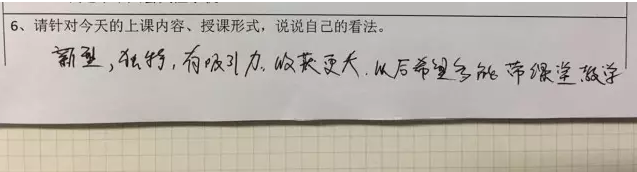 6、请针对今天的上课内容、授课形式，说说自己的看法。
新型，独特，有吸引力，收获更大，以后希望多能带课堂教学